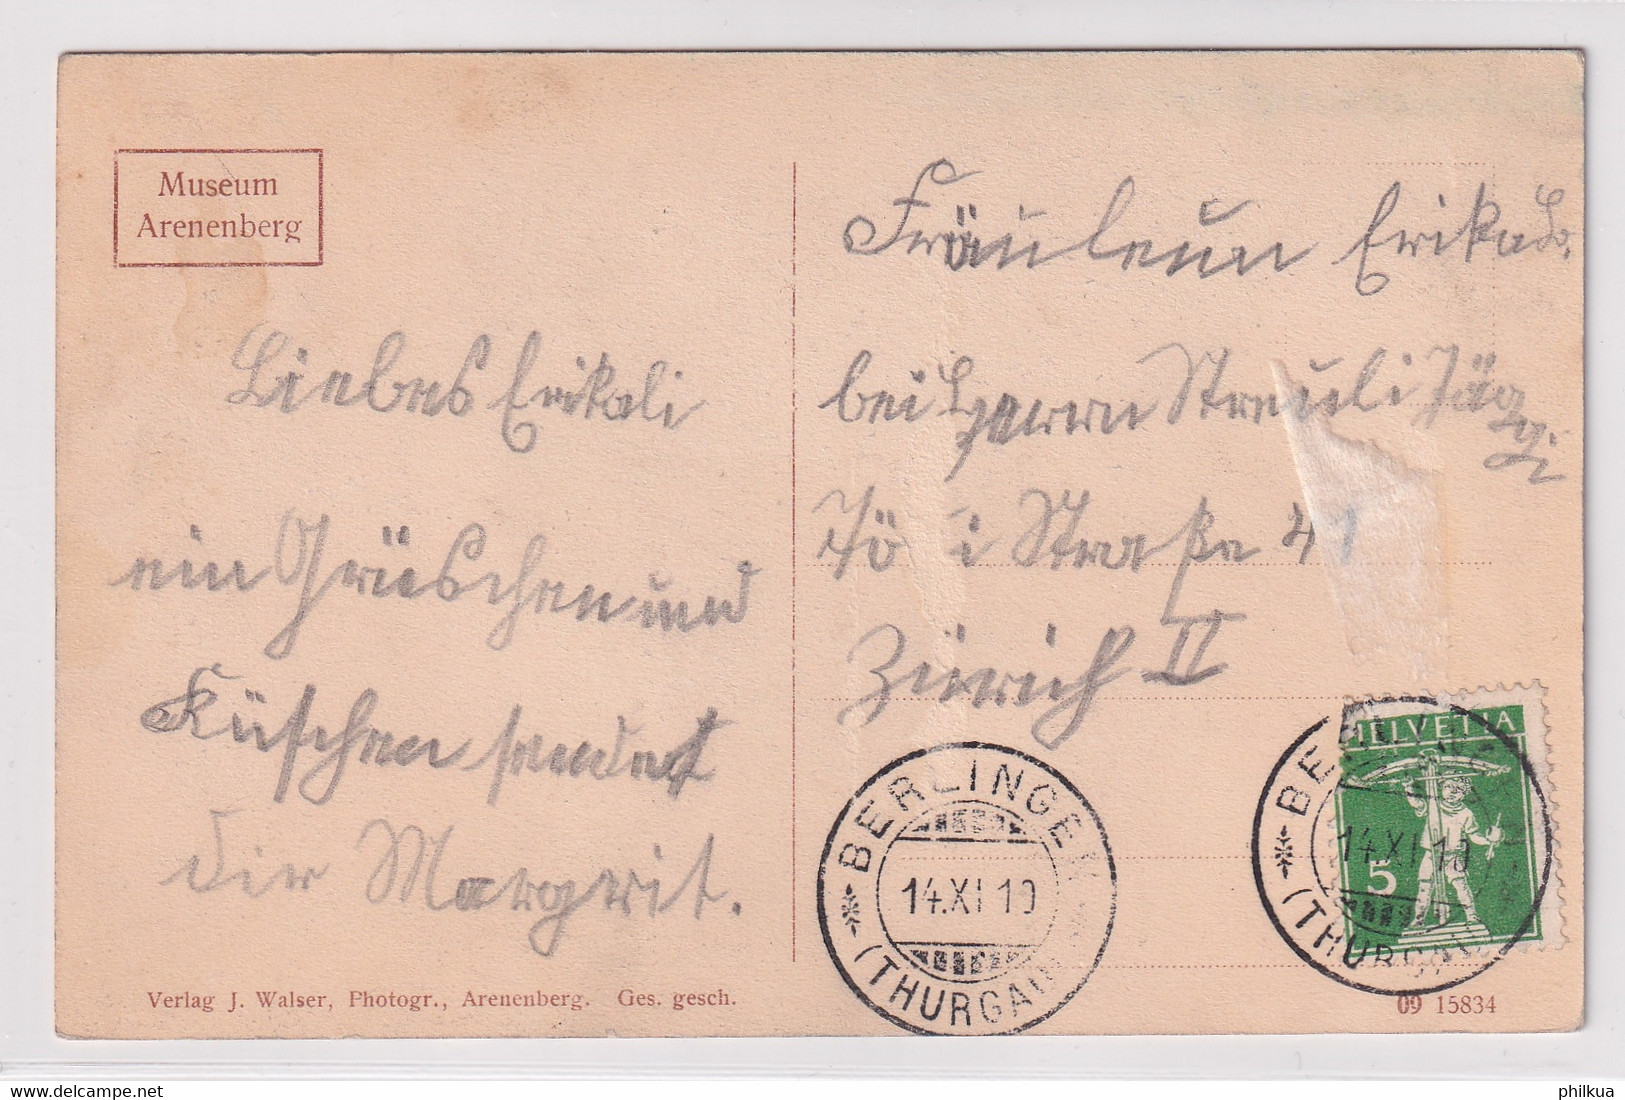 Museum
Arenenberg
Liebes Erikali
ein Grüschen und
Küschen sendet
dir Margrit.
Fräulein Erika
bei Herrn Streuli Jäggi
Straße 41
Zürich II
HELVETIA
5
BERLINGEN
14.XI 10
(THURGAU)
BERLINGEN
14.XI 10
(THURGAU)
Verlag J. Walser, Photogr., Arenenberg. Ges. gesch.
09 15834
philkua